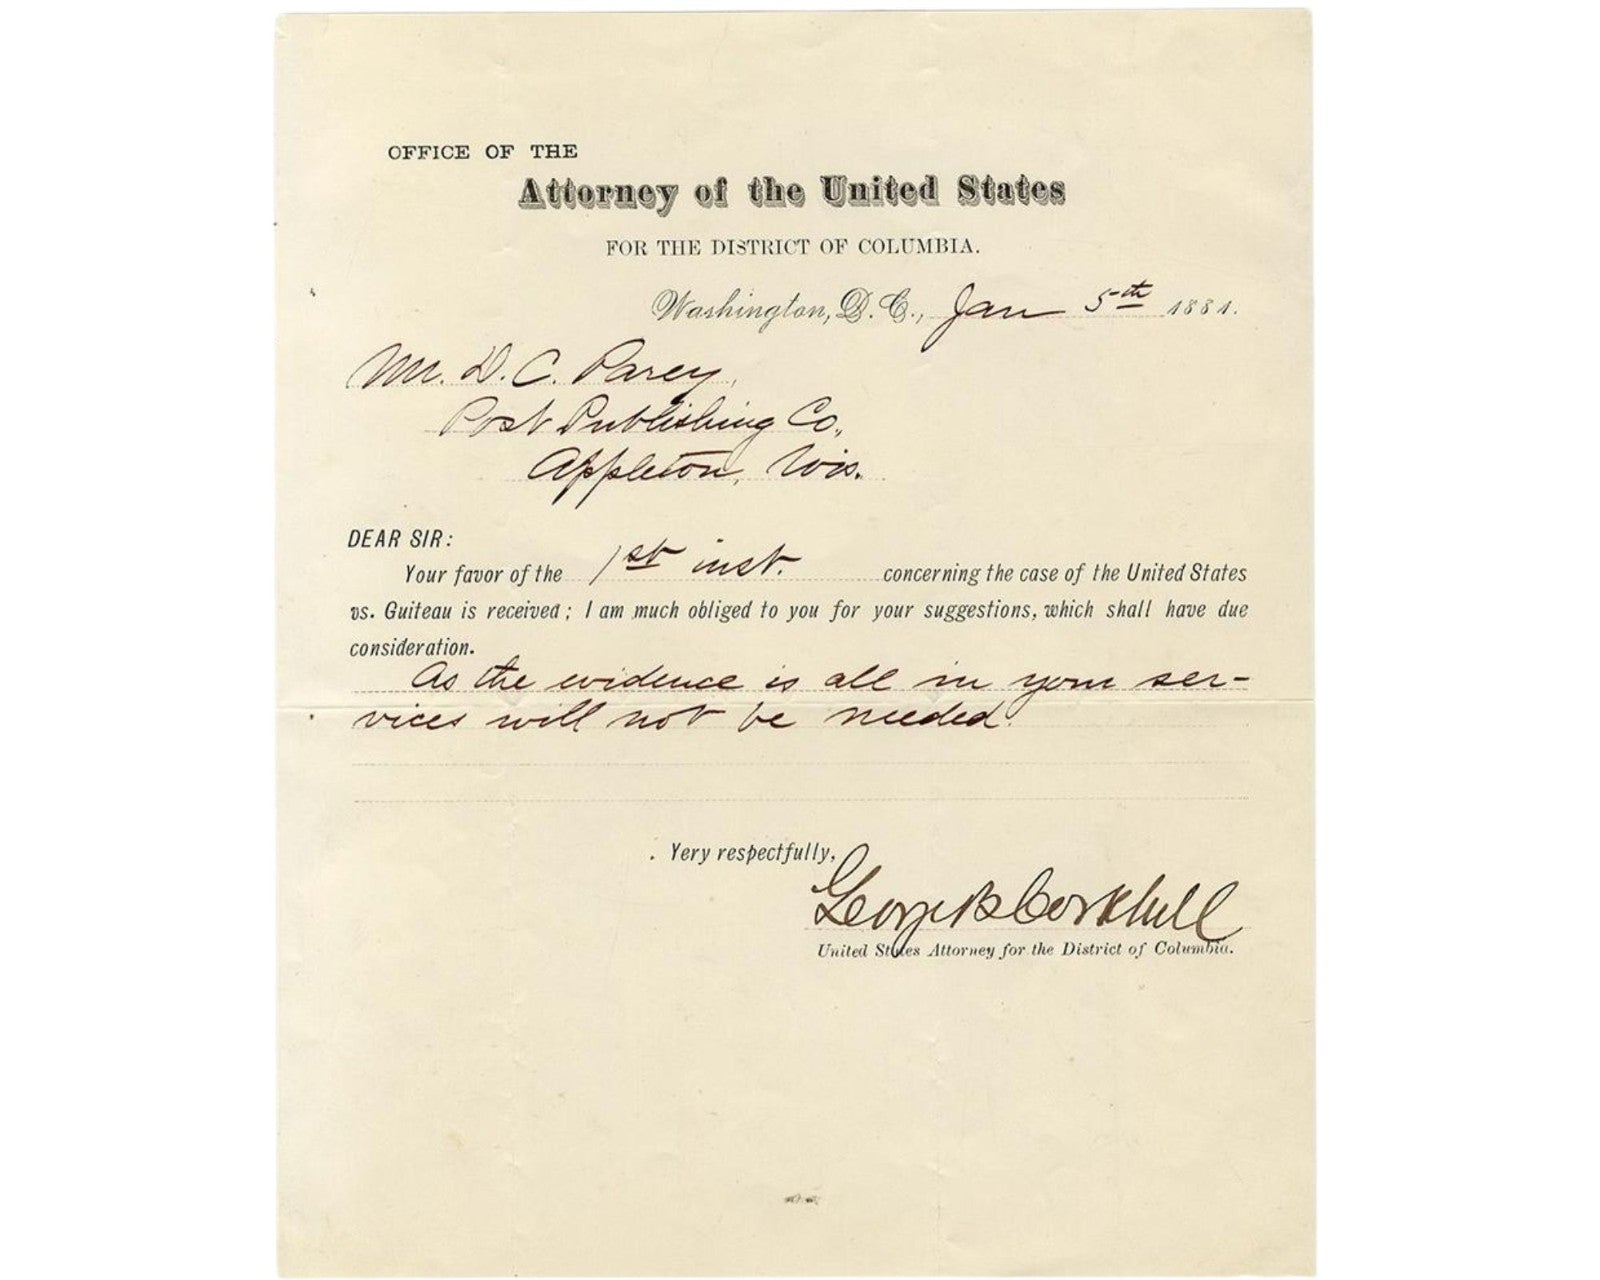 OFFICE OF THE
Attorney of the United States
FOR THE DISTRICT OF COLUMBIA.
Washington, D. C., Jan 5th 1881.
Mr. D. C. Pavey,
Post Publishing Co.,
Appleton, Wis.
DEAR SIR:
Your favor of the 1st inst. concerning the case of the United States
vs. Guiteau is received; I am much obliged to you for your suggestions, which shall have due
consideration.
As the evidence is all in your ser-
vices will not be needed.
Very respectfully,
George B Corkhill
United States Attorney for the District of Columbia.